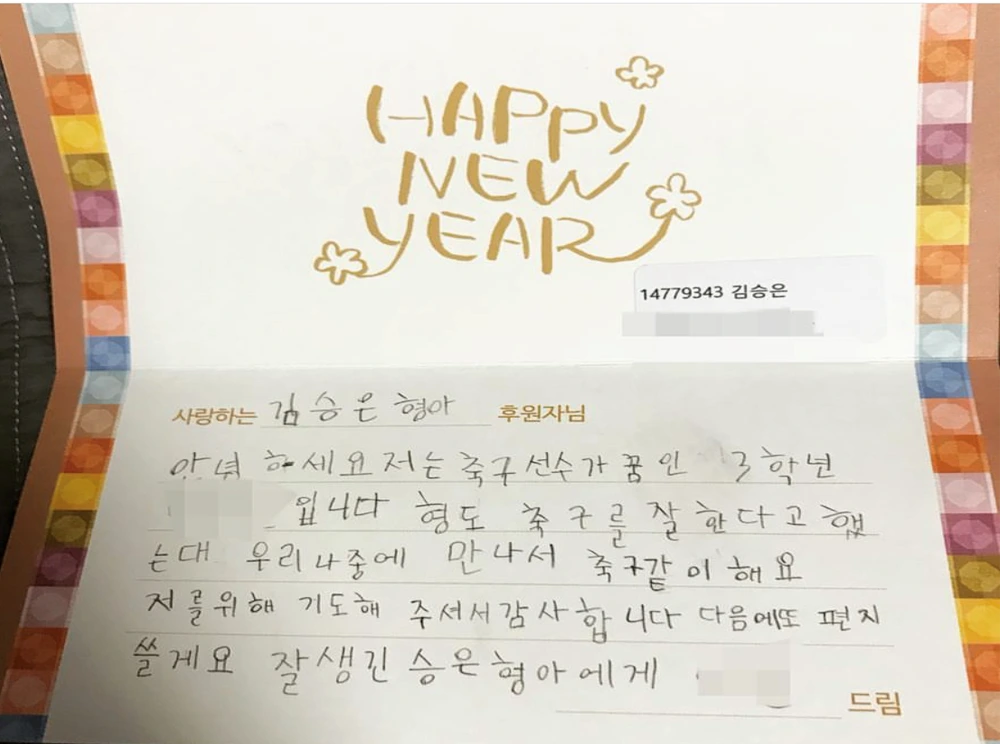 HAPPY
NEW
YEAR
14779343 김승은
사랑하는 김승은 형아 후원자님
안녕하세요 저는 축구선수가 꿈인 3학년
입니다 형도 축구를 잘 한다고 했
는대 우리 나중에 만나서 축구같이 해요
저를위해 기도해 주셔서감사합니다 다음에또 편지
쓸게요 잘생긴 승은 형아에게
드림